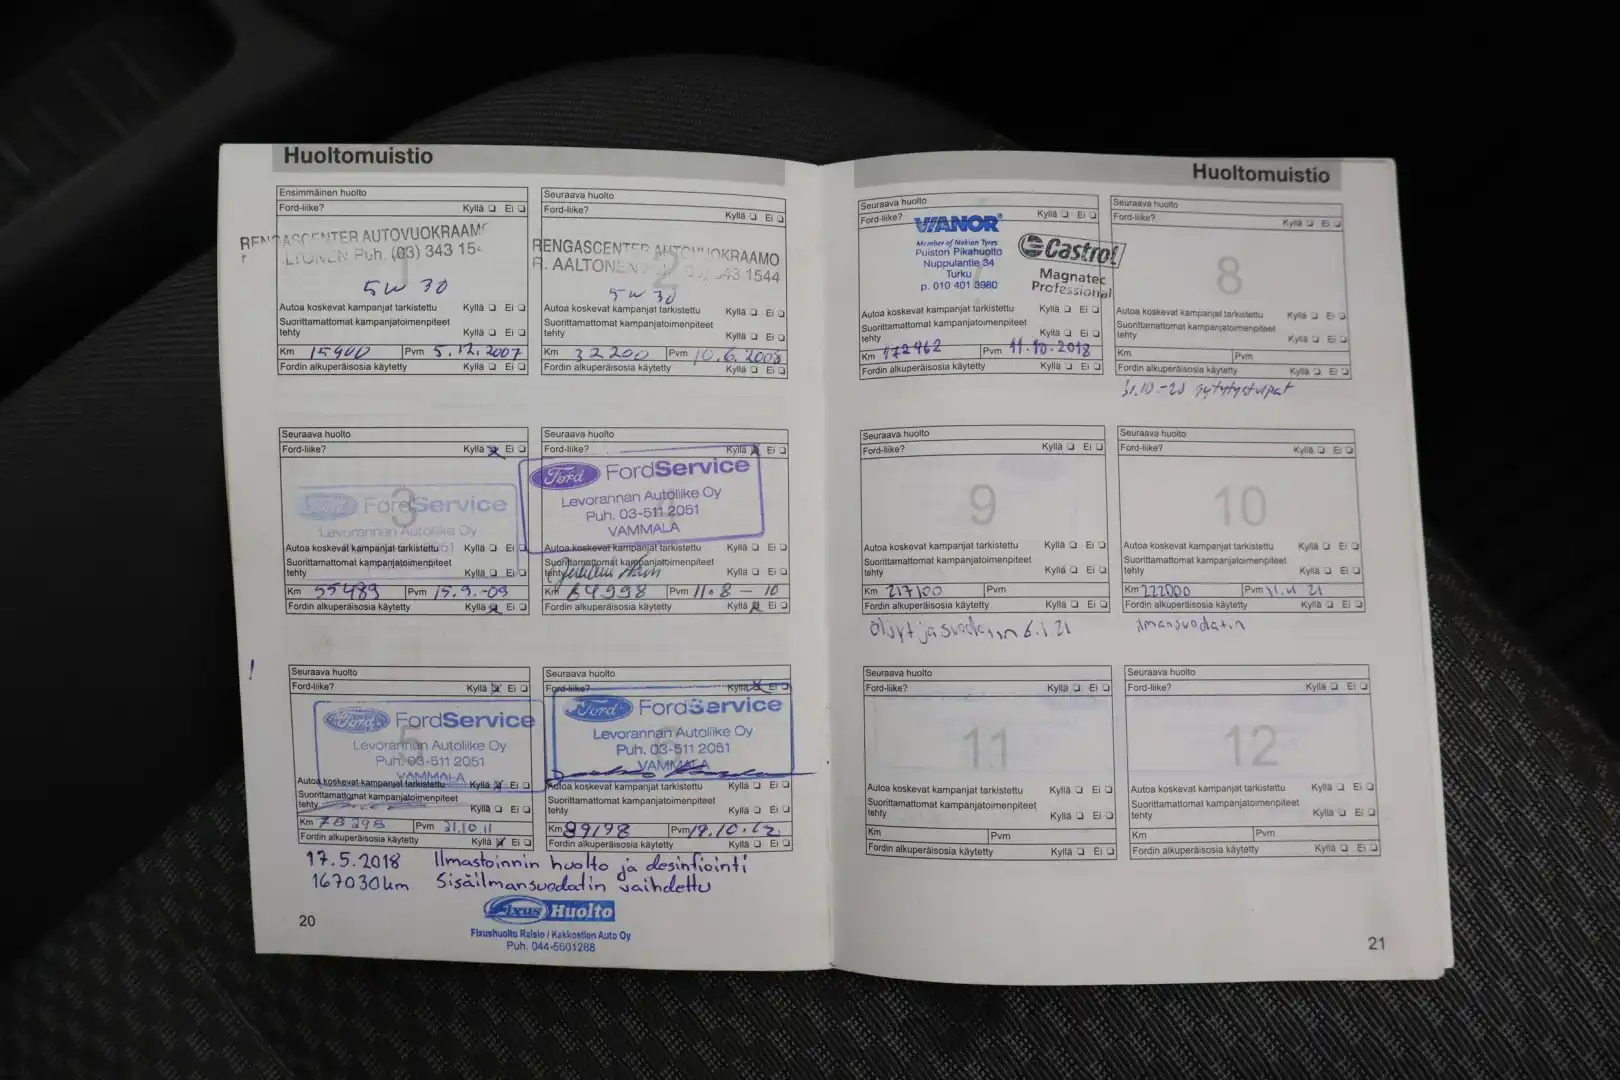 Huoltomuistio
Ensimmäinen huolto
Ford-liike? Kyllä ❏ Ei ❏
RENGASCENTER AUTOVUOKRAAMO
Puh. (03) 343 15
1
5W 30
Autoa koskevat kampanjat tarkistettu Kyllä ❏ Ei ❏
Suorittamattomat kampanjatoimenpiteet
tehty Kyllä ❏ Ei ❏
Km 15900 Pvm 5.12.2007
Fordin alkuperäisosia käytetty Kyllä ❏ Ei ❏
Seuraava huolto
Ford-liike? Kyllä ❏ Ei ❏
RENGASCENTER AUTOVUOKRAAMO
R. AALTONEN 343 1544
2
5W 30
Autoa koskevat kampanjat tarkistettu Kyllä ❏ Ei ❏
Suorittamattomat kampanjatoimenpiteet
tehty Kyllä ❏ Ei ❏
Km 32200 Pvm 10.6.2008
Fordin alkuperäisosia käytetty Kyllä ❏ Ei ❏
Seuraava huolto
Ford-liike? Kyllä ☒ Ei ❏
Ford FordService
3
Levorannan Autoliike Oy
Autoa koskevat kampanjat tarkistettu Kyllä ❏ Ei ❏
Suorittamattomat kampanjatoimenpiteet
tehty Kyllä ❏ Ei ❏
Km 55489 Pvm 15.9.-09
Fordin alkuperäisosia käytetty Kyllä ☒ Ei ❏
Seuraava huolto
Ford-liike? Kyllä ☒ Ei ❏
Ford FordService
Levorannan Autoliike Oy
Puh. 03-511 2051
VAMMALA
Autoa koskevat kampanjat tarkistettu Kyllä ❏ Ei ❏
Suorittamattomat kampanjatoimenpiteet
tehty Kyllä ❏ Ei ❏
Km 64998 Pvm 11.8-10
Fordin alkuperäisosia käytetty Kyllä ☒ Ei ❏
!
Seuraava huolto
Ford-liike? Kyllä ☒ Ei ❏
Ford FordService
5
Levorannan Autoliike Oy
Puh. 03-511 2051
VAMMALA
Autoa koskevat kampanjat tarkistettu Kyllä ☒ Ei ❏
Suorittamattomat kampanjatoimenpiteet
tehty Kyllä ❏ Ei ❏
Km 78298 Pvm 21.10.11
Fordin alkuperäisosia käytetty Kyllä ☒ Ei ❏
Seuraava huolto
Ford-liike? Kyllä ☒ Ei ❏
Ford FordService
Levorannan Autoliike Oy
Puh. 03-511 2051
VAMMALA
Autoa koskevat kampanjat tarkistettu Kyllä ❏ Ei ❏
Suorittamattomat kampanjatoimenpiteet
tehty Kyllä ❏ Ei ❏
Km 89198 Pvm 19.10.12
Fordin alkuperäisosia käytetty Kyllä ❏ Ei ❏
17.5.2018 Ilmastoinnin huolto ja desinfiointi
167030km Sisäilmansuodatin vaihdettu
Fixus Huolto
Fixushuolto Raisio / Kakkostien Auto Oy
Puh. 044-5601288
20
Huoltomuistio
Seuraava huolto
Ford-liike? Kyllä ❏ Ei ❏
VIANOR
Member of Nokian Tyres
Puiston Pikahuolto
Nuppulantie 34
Turku
p. 010 401 3980
Castrol
Magnatec
Professional
Autoa koskevat kampanjat tarkistettu Kyllä ❏ Ei ❏
Suorittamattomat kampanjatoimenpiteet
tehty Kyllä ❏ Ei ❏
Km 172962 Pvm 11.10.2018
Fordin alkuperäisosia käytetty Kyllä ❏ Ei ❏
Seuraava huolto
Ford-liike? Kyllä ❏ Ei ❏
8
Autoa koskevat kampanjat tarkistettu Kyllä ❏ Ei ❏
Suorittamattomat kampanjatoimenpiteet
tehty Kyllä ❏ Ei ❏
Km Pvm
Fordin alkuperäisosia käytetty Kyllä ❏ Ei ❏
31.10-20 sytytystulpat
Seuraava huolto
Ford-liike? Kyllä ❏ Ei ❏
9
Autoa koskevat kampanjat tarkistettu Kyllä ❏ Ei ❏
Suorittamattomat kampanjatoimenpiteet
tehty Kyllä ❏ Ei ❏
Km 217100 Pvm
Fordin alkuperäisosia käytetty Kyllä ❏ Ei ❏
Öljyt ja suodatin 6.1.21
Seuraava huolto
Ford-liike? Kyllä ❏ Ei ❏
10
Autoa koskevat kampanjat tarkistettu Kyllä ❏ Ei ❏
Suorittamattomat kampanjatoimenpiteet
tehty Kyllä ❏ Ei ❏
Km 222000 Pvm 21
Fordin alkuperäisosia käytetty Kyllä ❏ Ei ❏
ilmansuodatin
Seuraava huolto
Ford-liike? Kyllä ❏ Ei ❏
11
Autoa koskevat kampanjat tarkistettu Kyllä ❏ Ei ❏
Suorittamattomat kampanjatoimenpiteet
tehty Kyllä ❏ Ei ❏
Km Pvm
Fordin alkuperäisosia käytetty Kyllä ❏ Ei ❏
Seuraava huolto
Ford-liike? Kyllä ❏ Ei ❏
12
Autoa koskevat kampanjat tarkistettu Kyllä ❏ Ei ❏
Suorittamattomat kampanjatoimenpiteet
tehty Kyllä ❏ Ei ❏
Km Pvm
Fordin alkuperäisosia käytetty Kyllä ❏ Ei ❏
21